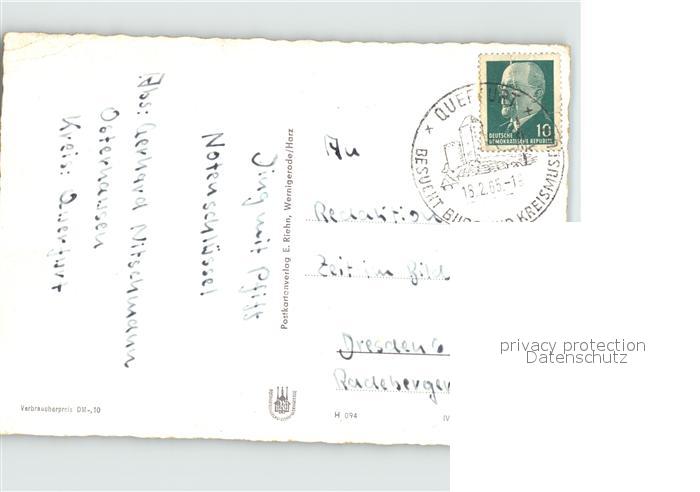 Abs: Gerhard Nitschmann
Osterhausen
Kreis: Querfurt
Notenschlüssel
Ding mit Pfiff
Postkartenverlag E. Riehn, Wernigerode/Harz
Verbraucherpreis DM -,10
QUERFURT
BESUCHT BURG UND KREISMUSEUM
16.2.65.-18
DEUTSCHE
DEMOKRATISCHE REPUBLIK
10
An
Redaktion
Zeit im Bild
Dresden
Radeberger
H 094
IV
privacy protection
Datenschutz